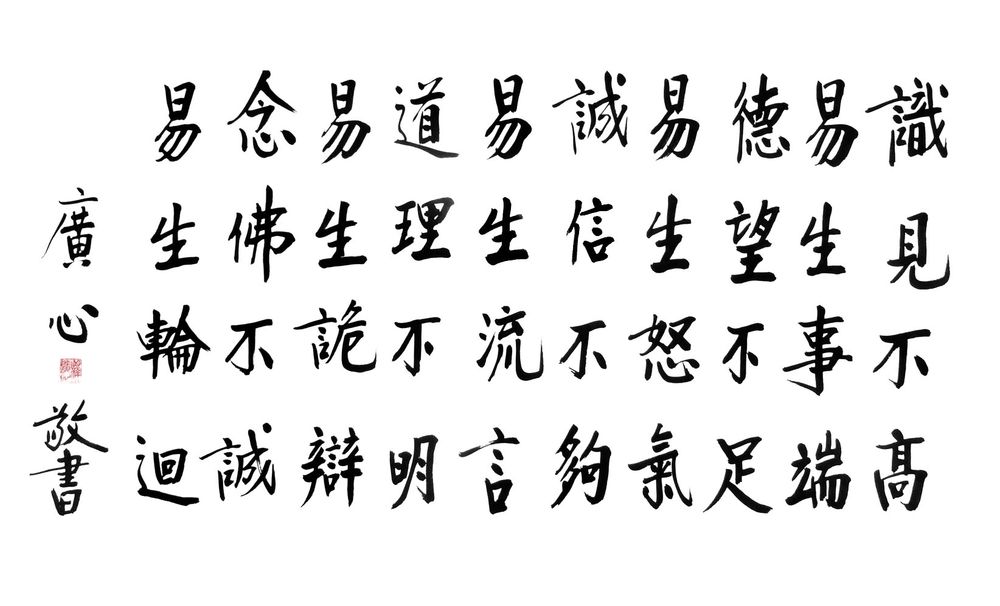 識見不高
易生事端
德望不足
易生怒氣
誠信不夠
易生流言
道理不明
易生詭辯
念佛不誠
易生輪迴
廣心敬書